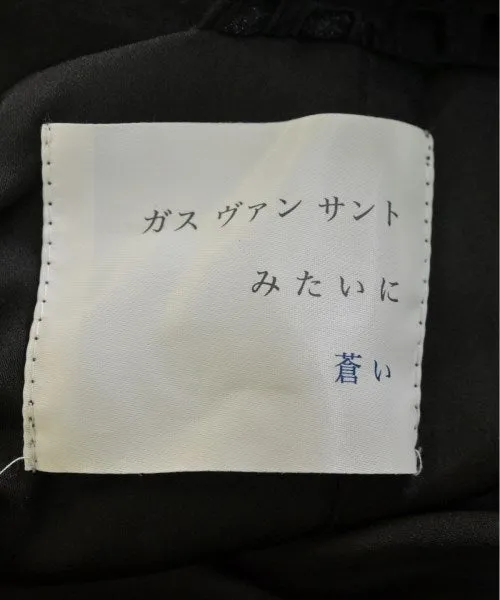 ガス ヴァン サント
みたいに
蒼い